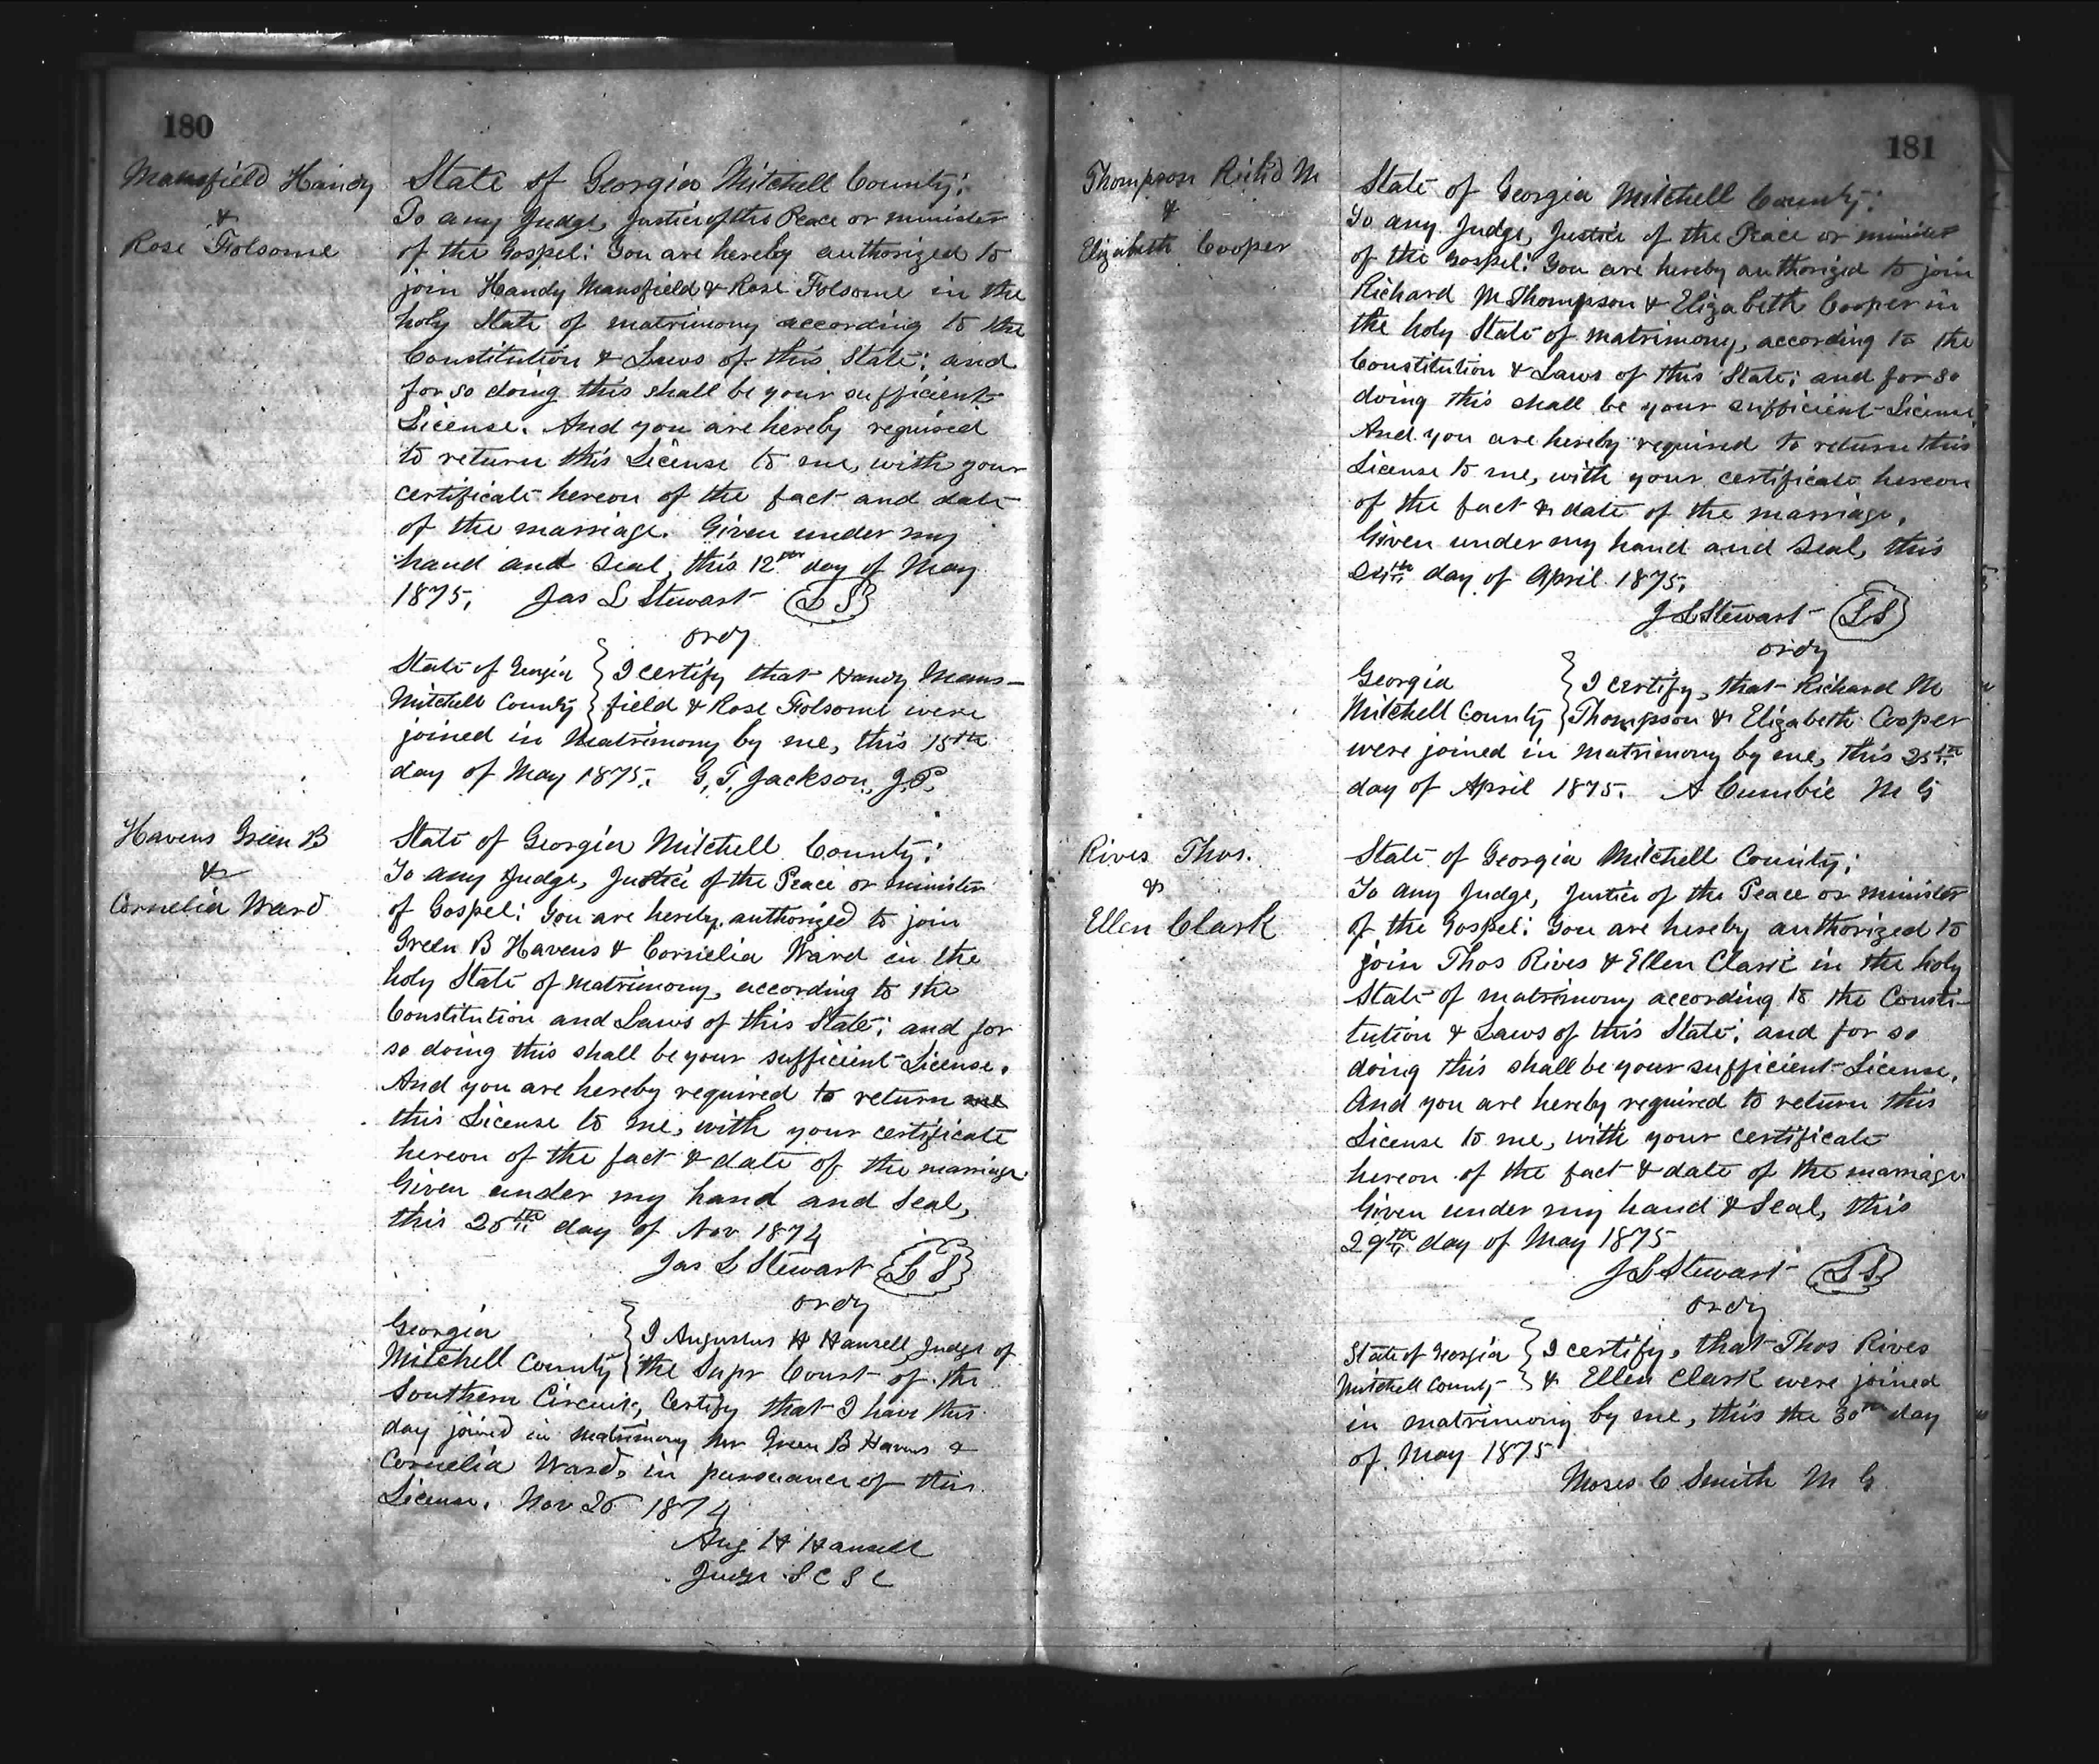 180
Mansfield Handy
&
Rose Folsome
State of Georgia Mitchell County;
To any Judge, Justice of the Peace or minister
of the Gospel: You are hereby authorized to
join Handy Mansfield & Rose Folsome in the
holy State of matrimony according to the
Constitution & Laws of this State; and
for so doing this shall be your sufficient
License. And you are hereby required
to return this License to me, with your
certificate hereon of the fact and date
of the marriage. Given under my
hand and seal, this 12th day of May
1875, Jas L Stewart (L S)
ordy
State of Georgia } I certify that Handy Mans-
Mitchell County } field & Rose Folsome were
joined in Matrimony by me, this 15th
day of May 1875. G. T. Jackson, J.P.
Havens Green B
&
Cornelia Ward
State of Georgia Mitchell County;
To any Judge, Justice of the Peace or minister
of Gospel: You are hereby authorized to join
Green B Havens & Cornelia Ward in the
holy State of matrimony, according to the
Constitution and Laws of this State; and for
so doing this shall be your sufficient License.
And you are hereby required to return me
this License to me, with your certificate
hereon of the fact & date of the marriage
Given under my hand and seal,
this 25th day of Nov 1874
Jas L Stewart (L S)
ordy
Georgia } I Augustus H Hansell Judge of
Mitchell County } the Supr Court of the
Southern Circuit, Certify that I have this
day joined in matrimony Mr Green B Havens &
Cornelia Ward, in pursuance of this
License. Nov 26 1874
Aug H Hansell
Judge S C S C
181
Thompson Rich'd M
&
Elizabeth Cooper
State of Georgia Mitchell County;
To any Judge, Justice of the Peace or minister
of the Gospel: You are hereby authorized to join
Richard M Thompson & Elizabeth Cooper in
the holy State of matrimony, according to the
Constitution & Laws of this State; and for so
doing this shall be your sufficient License,
And you are hereby required to return this
License to me, with your certificate hereon
of the fact & date of the marriage.
Given under my hand and seal, this
24th day of April 1875,
J L Stewart (L S)
ordy
Georgia } I certify, that Richard M
Mitchell County } Thompson & Elizabeth Cooper
were joined in matrimony by me, this 25th
day of April 1875. A Cumbie M G
Rives Thos.
&
Ellen Clark
State of Georgia Mitchell County;
To any Judge, Justice of the Peace or minister
of the Gospel: You are hereby authorized to
join Thos Rives & Ellen Clark in the holy
State of matrimony according to the Consti-
tution & Laws of this State; and for so
doing this shall be your sufficient License,
And you are hereby required to return this
License to me, with your certificate
hereon of the fact & date of the marriage
Given under my hand & Seal, this
29th day of May 1875
J L Stewart (L S)
ordy
State of Georgia } I certify, that Thos Rives
Mitchell County } & Ellen Clark were joined
in matrimony by me, this the 30th day
of May 1875
Moses C Smith M G